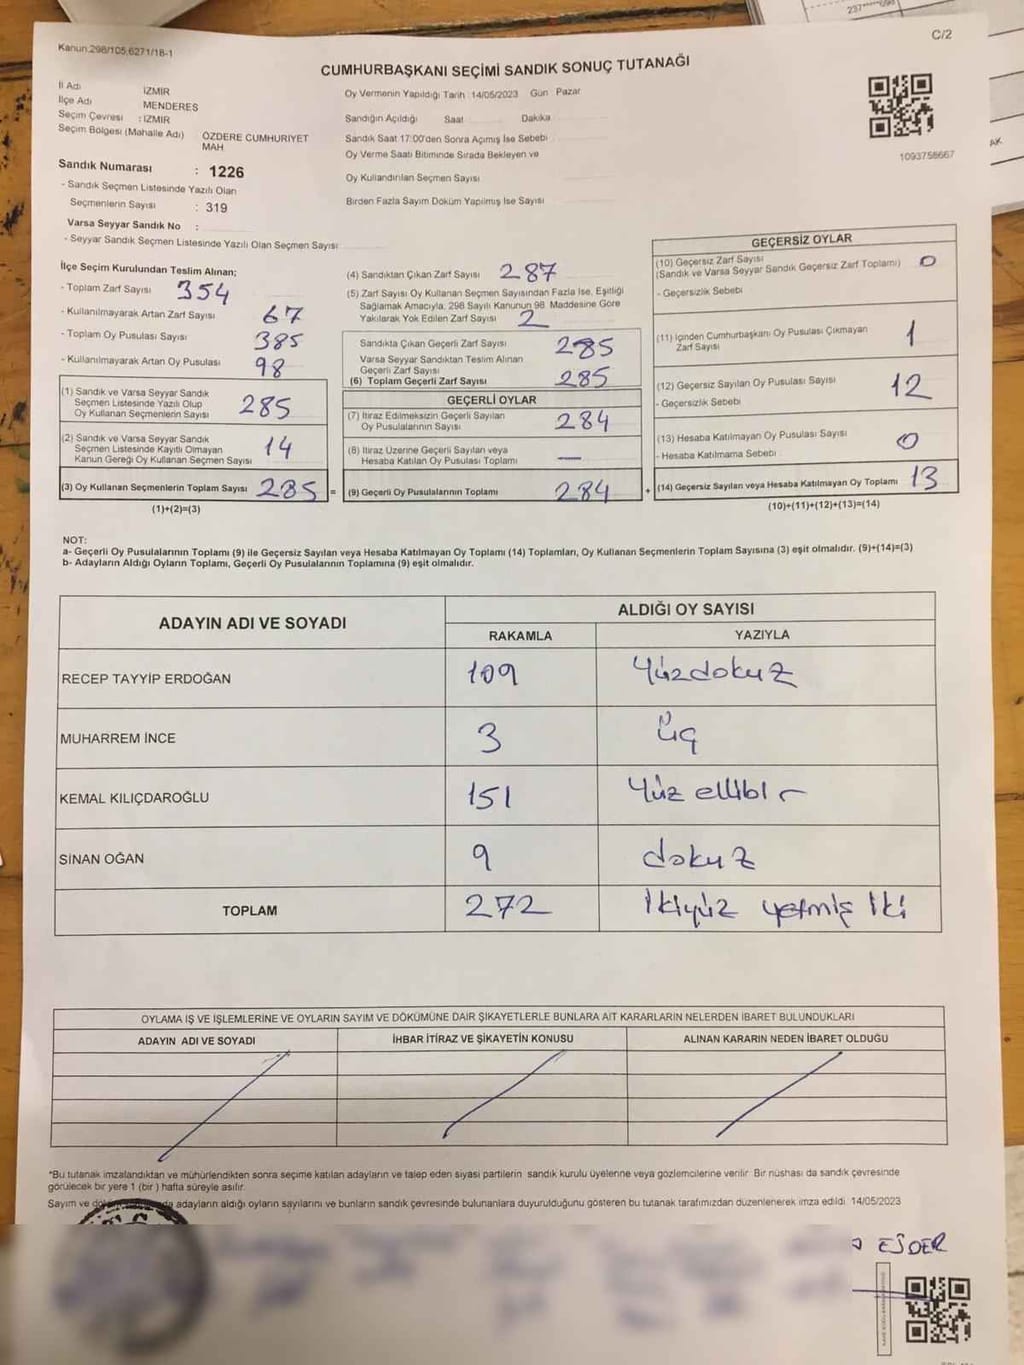 237*****696
C/2
Kanun:298/105,6271/18-1
CUMHURBAŞKANI SEÇİMİ SANDIK SONUÇ TUTANAĞI
İl Adı İZMİR
İlçe Adı MENDERES
Seçim Çevresi : İZMİR
Seçim Bölgesi (Mahalle Adı) ÖZDERE CUMHURİYET MAH.
Oy Vermenin Yapıldığı Tarih :14/05/2023 Gün Pazar
Sandığın Açıldığı Saat Dakika
Sandık Saat 17:00'den Sonra Açımış İse Sebebi
Oy Verme Saati Bitiminde Sırada Bekleyen ve
Oy Kullandırılan Seçmen Sayısı
Birden Fazla Sayım Döküm Yapılmış İse Sayısı
1093758667
AK
Sandık Numarası : 1226
- Sandık Seçmen Listesinde Yazılı Olan
Seçmenlerin Sayısı : 319
Varsa Seyyar Sandık No :
- Seyyar Sandık Seçmen Listesinde Yazılı Olan Seçmen Sayısı
İlçe Seçim Kurulundan Teslim Alınan;
- Toplam Zarf Sayısı 354
- Kullanılmayarak Artan Zarf Sayısı 67
- Toplam Oy Pusulası Sayısı 385
- Kullanılmayarak Artan Oy Pusulası 98
(1) Sandık ve Varsa Seyyar Sandık
Seçmen Listesinde Yazılı Olup
Oy Kullanan Seçmenlerin Sayısı 285
(2) Sandık ve Varsa Seyyar Sandık
Seçmen Listesinde Kayıtlı Olmayan
Kanun Gereği Oy Kullanan Seçmen Sayısı 14
(3) Oy Kullanan Seçmenlerin Toplam Sayısı 285 =
(1)+(2)=(3)
(4) Sandıktan Çıkan Zarf Sayısı 287
(5) Zarf Sayısı Oy Kullanan Seçmen Sayısından Fazla İse, Eşitliği
Sağlamak Amacıyla; 298 Sayılı Kanunun 98. Maddesine Göre
Yakılarak Yok Edilen Zarf Sayısı 2
Sandıkta Çıkan Geçerli Zarf Sayısı 285
Varsa Seyyar Sandıktan Teslim Alınan
Geçerli Zarf Sayısı
(6) Toplam Geçerli Zarf Sayısı 285
GEÇERLİ OYLAR
(7) İtiraz Edilmeksizin Geçerli Sayılan
Oy Pusulalarının Sayısı 284
(8) İtiraz Üzerine Geçerli Sayılan veya
Hesaba Katılan Oy Pusulası Toplamı —
(9) Geçerli Oy Pusulalarının Toplamı 284 +
GEÇERSİZ OYLAR
(10) Geçersiz Zarf Sayısı
(Sandık ve Varsa Seyyar Sandık Geçersiz Zarf Toplamı) 0
- Geçersizlik Sebebi
(11) İçinden Cumhurbaşkanı Oy Pusulası Çıkmayan
Zarf Sayısı 1
(12) Geçersiz Sayılan Oy Pusulası Sayısı 12
- Geçersizlik Sebebi
(13) Hesaba Katılmayan Oy Pusulası Sayısı 0
- Hesaba Katılmama Sebebi
(14) Geçersiz Sayılan veya Hesaba Katılmayan Oy Toplamı 13
(10)+(11)+(12)+(13)=(14)
NOT:
a- Geçerli Oy Pusulalarının Toplamı (9) ile Geçersiz Sayılan veya Hesaba Katılmayan Oy Toplamı (14) Toplamları, Oy Kullanan Seçmenlerin Toplam Sayısına (3) eşit olmalıdır. (9)+(14)=(3)
b- Adayların Aldığı Oyların Toplamı, Geçerli Oy Pusulalarının Toplamına (9) eşit olmalıdır.
ADAYIN ADI VE SOYADI
ALDIĞI OY SAYISI
RAKAMLA YAZIYLA
RECEP TAYYİP ERDOĞAN 109 Yüzdokuz
MUHARREM İNCE 3 üç
KEMAL KILIÇDAROĞLU 151 Yüz ellibir
SİNAN OĞAN 9 dokuz
TOPLAM 272 İkiyüz yetmiş iki
OYLAMA İŞ VE İŞLEMLERİNE VE OYLARIN SAYIM VE DÖKÜMÜNE DAİR ŞİKAYETLERLE BUNLARA AİT KARARLARIN NELERDEN İBARET BULUNDUKLARI
ADAYIN ADI VE SOYADI İHBAR İTİRAZ VE ŞİKAYETİN KONUSU ALINAN KARARIN NEDEN İBARET OLDUĞU
*Bu tutanak imzalandıktan ve mühürlendikten sonra seçime katılan adayların ve talep eden siyasi partilerin sandık kurulu üyelerine veya gözlemcilerine verilir. Bir nüshası da sandık çevresinde
görülecek bir yere 1 (bir) hafta süreyle asılır.
Sayım ve adayların aldığı oyların sayılarını ve bunların sandık çevresinde bulunanlara duyurulduğunu gösteren bu tutanak tarafımızdan düzenlenerek imza edildi. 14/05/2023
T.C.
EJDER